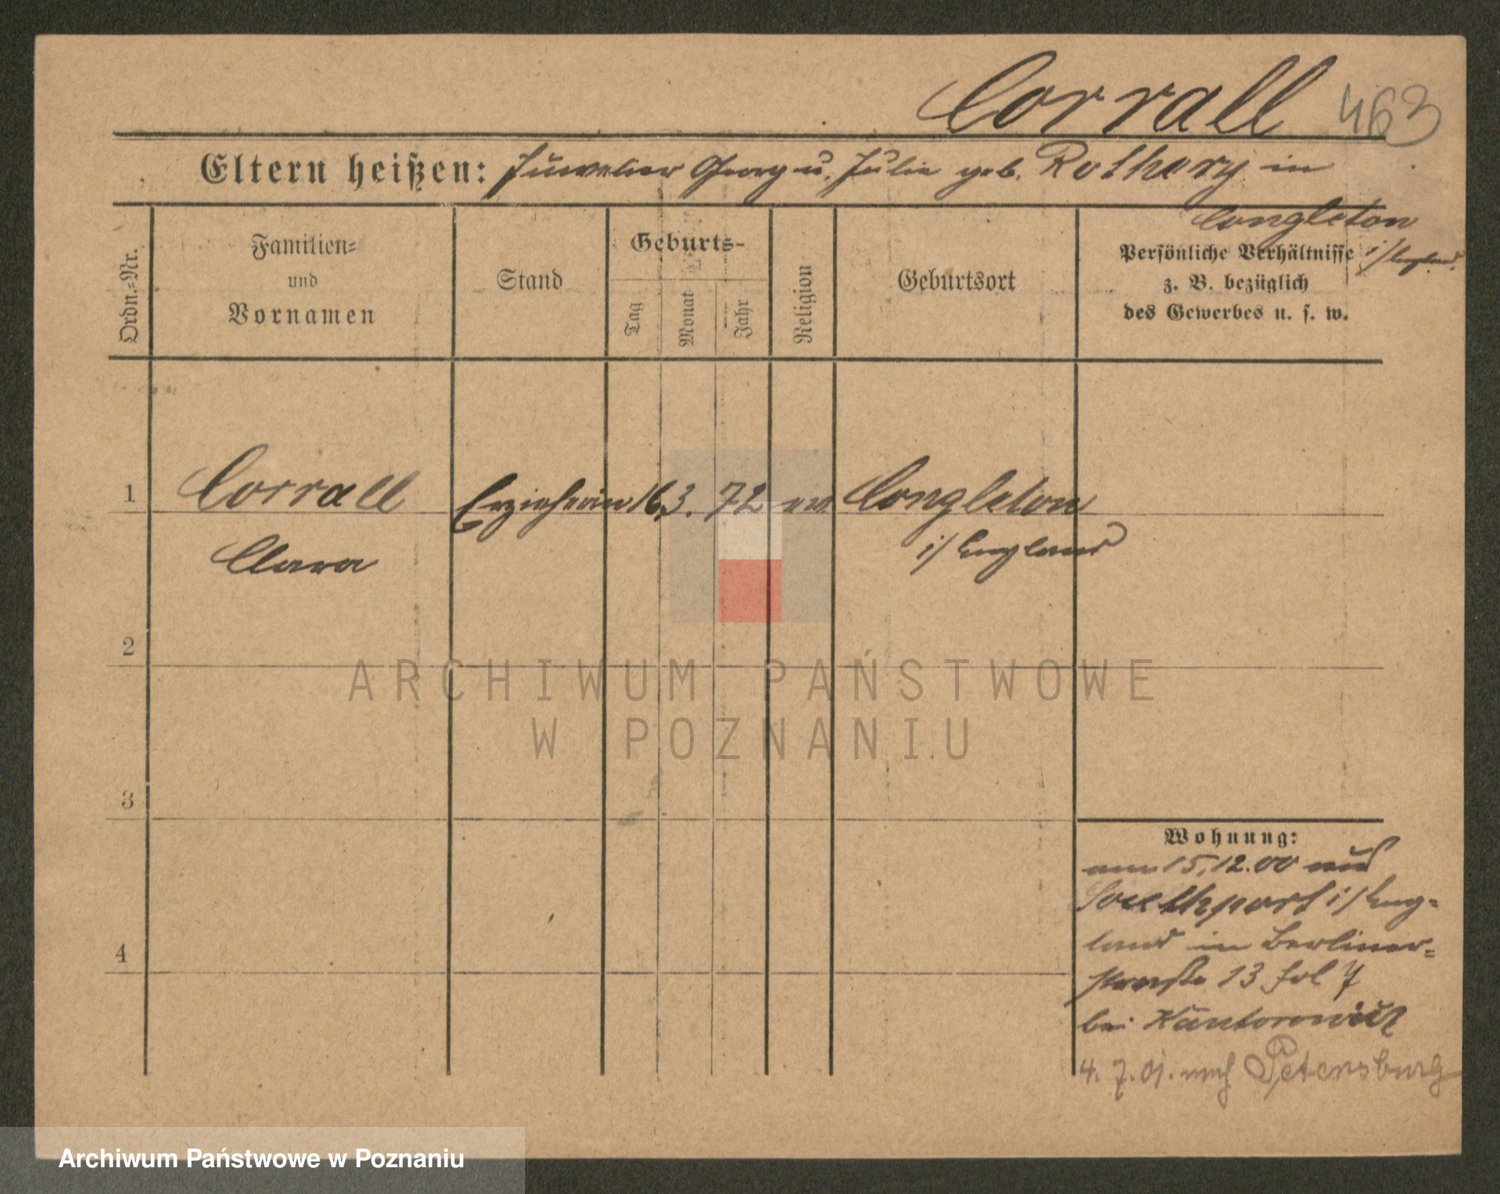 Corrall 463
Eltern heißen: Juwelier Georg u. Julie geb. Rothery in
Congleton
i/England.
Ordn.-Nr.
Familien-
und
Vornamen
Stand
Geburts-
Tag
Monat
Jahr
Religion
Geburtsort
Persönliche Verhältnisse
z. B. bezüglich
des Gewerbes u. s. w.
1 Corrall Erzieherin 16. 3. 72 ev. Congleton
Clara i/England
2
ARCHIWUM PAŃSTWOWE
W POZNANIU
3
Wohnung:
am 15.12.00 aus
Southport i/Eng-
land in Berliner-
4
straße 13 bei
bei Kantorowicz
4. 7. 01. nach Petersburg
Archiwum Państwowe w Poznaniu